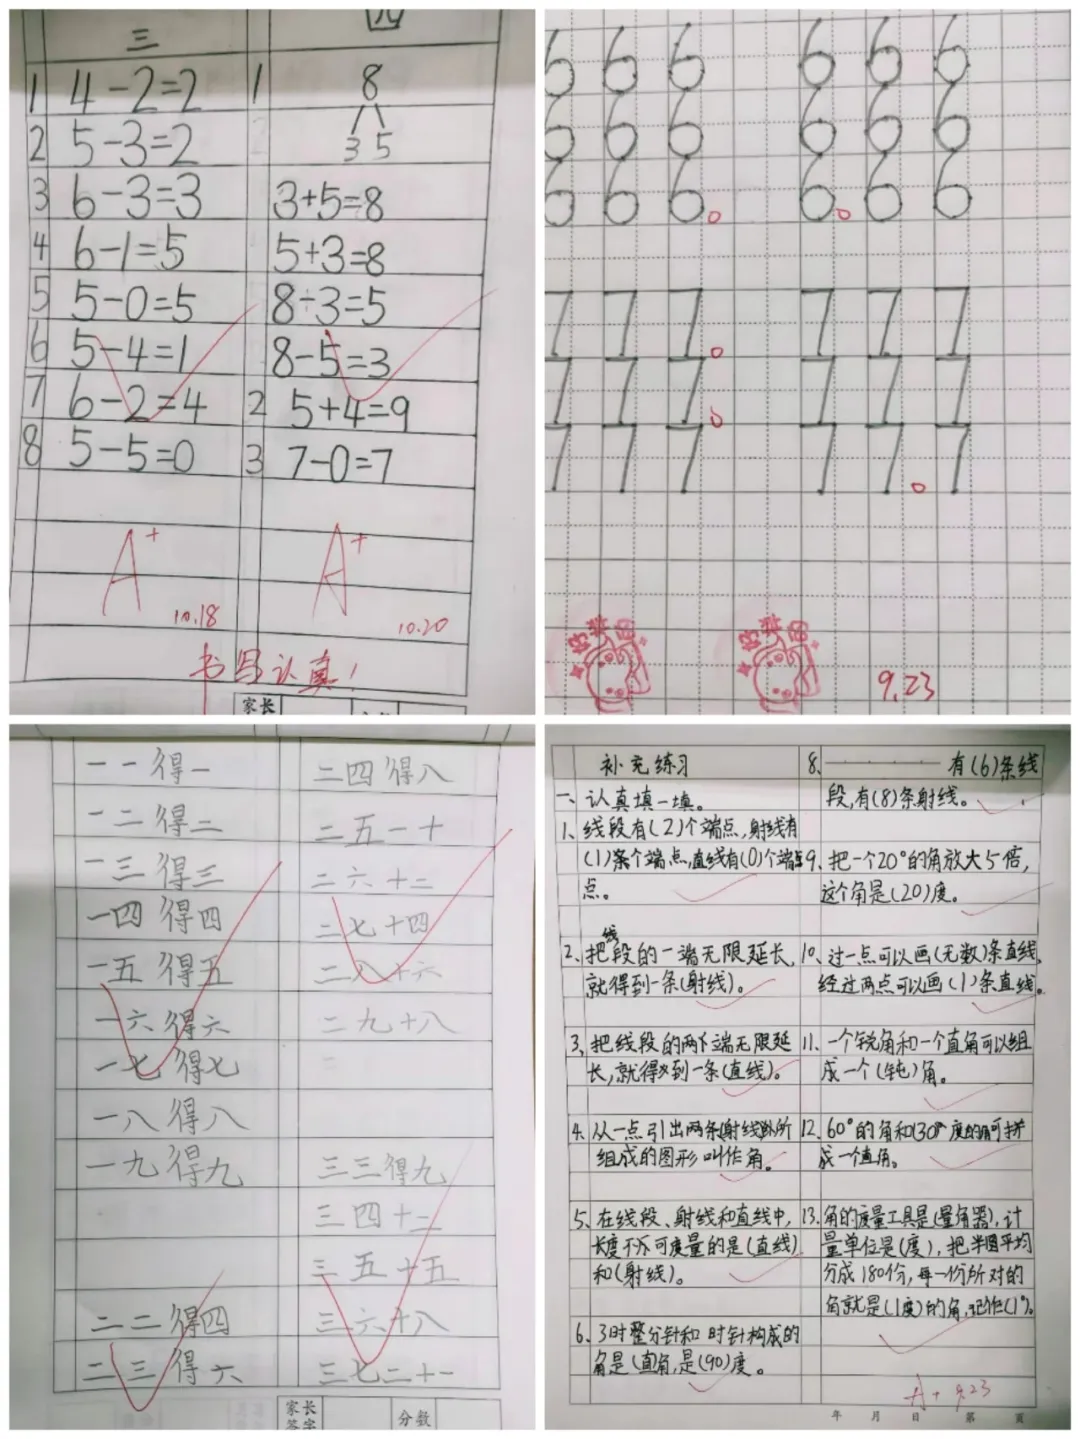 三
1 4-2=2
2 5-3=2
3 6-3=3
4 6-1=5
5 5-0=5
6 5-4=1
7 6-2=4
8 5-5=0
A+
10.18
四
1 8
3 5
3+5=8
5+3=8
8-3=5
8-5=3
2 5+4=9
3 7-0=7
A+
10.20
书写认真!
家长
6 6 6 6 6 6
6 6 6 6 6 6
6 6 6 6 6 6
7 7 7 7 7 7
7 7 7 7 7 7
7 7 7 7 7 7
9.23
一一得一
一二得二
一三得三
一四得四
一五得五
一六得六
一七得七
一八得八
一九得九
二二得四
二三得六
二四得八
二五一十
二六十二
二七十四
二八十六
二九十八
三三得九
三四十二
三五十五
三六十八
三七二十一
家长
签字
分数
补充练习
一、认真填一填。
1、线段有(2)个端点,射线有
(1)条个端点,直线有(0)个端
点。
2、把线段的一端无限延长,
就得到一条(射线)。
3、把线段的两个端无限延
长,就得到一条(直线)。
4、从一点引出两条射线所
组成的图形叫作角。
5、在线段、射线和直线中,
长度不可度量的是(直线)
和(射线)。
6、3时整分针和时针构成的
角是(直)角,是(90)度。
8、 有(6)条线
段,有(8)条射线。
9、把一个20°的角放大5倍,
这个角是(20)度。
10、过一点可以画(无数)条直线,
经过两点可以画(1)条直线。
11、一个锐角和一个直角可以组
成一个(钝)角。
12、60°的角和(30)度的角可拼
成一个直角。
13、角的度量工具是(量角器),计
量单位是(度),把半圆平均
分成180份,每一份所对的
角就是(1度)的角,记作(1°)。
A+ 9.23
年 月 日 第 页